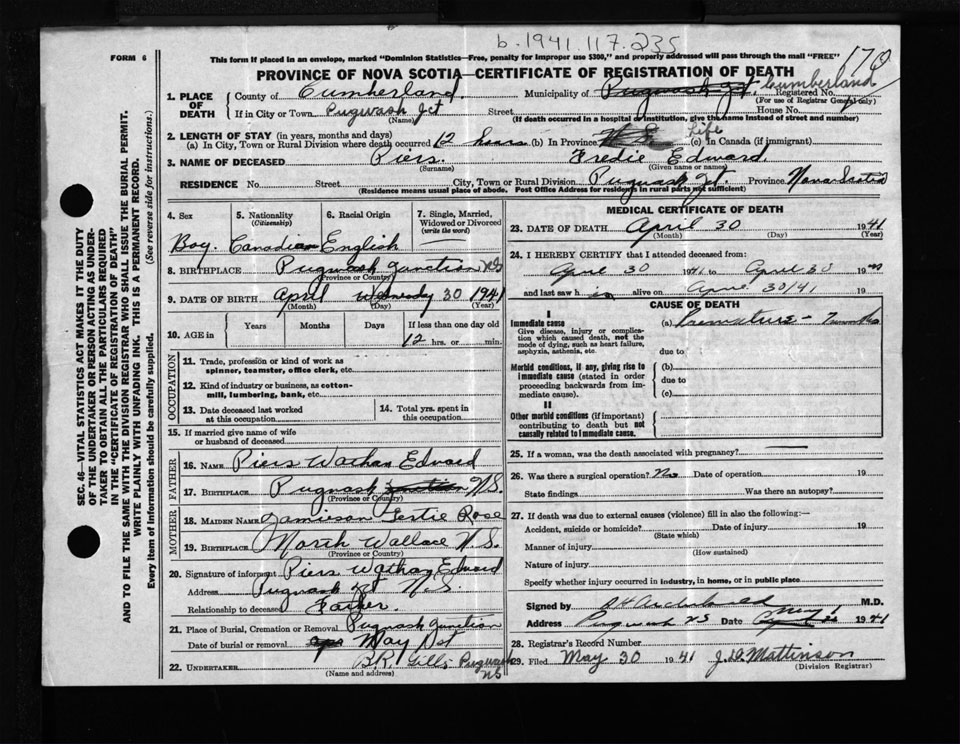 b. 1941. 117. 235
170
FORM 6
This form if placed in an envelope, marked "Dominion Statistics—Free, penalty for improper use $300," and properly addressed will pass through the mail "FREE"
PROVINCE OF NOVA SCOTIA—CERTIFICATE OF REGISTRATION OF DEATH
1. PLACE OF DEATH
County of Cumberland. Municipality of Pugwash Jct. Cumberland Registered No.
(For use of Registrar General only)
If in City or Town Pugwash Jct Street House No.
(Name) (If death occurred in a hospital or institution, give the name instead of street and number)
2. LENGTH OF STAY (in years, months and days)
(a) In City, Town or Rural Division where death occurred 12 hours (b) In Province Life (c) In Canada (if immigrant)
3. NAME OF DECEASED Piers. Fredie Edward.
(Surname) (Given name or names)
RESIDENCE No. Street City, Town or Rural Division Pugwash Jct. Province Nova Scotia
(Residence means usual place of abode. Post Office Address for residents in rural parts not sufficient)
4. Sex 5. Nationality (Citizenship) 6. Racial Origin 7. Single, Married, Widowed or Divorced (write the word)
Boy. Canadian English —
8. BIRTHPLACE Pugwash Junction NS
(Province or Country)
9. DATE OF BIRTH April Wednesday 30 1941
(Month) (Day) (Year)
10. AGE in Years Months Days If less than one day old
12 hrs. or min.
OCCUPATION
11. Trade, profession or kind of work as spinner, teamster, office clerk, etc.
12. Kind of industry or business, as cotton-mill, lumbering, bank, etc.
13. Date deceased last worked at this occupation
14. Total yrs. spent in this occupation
15. If married give name of wife or husband of deceased
FATHER
16. NAME Piers Wathan Edward
17. BIRTHPLACE Pugwash Junction N.S.
(Province or Country)
MOTHER
18. MAIDEN NAME Jamieson Gertie Rose
19. BIRTHPLACE North Wallace N.S.
(Province or Country)
20. Signature of informant Piers Wathan Edward
Address Pugwash Jct N.S
Relationship to deceased Father.
21. Place of Burial, Cremation or Removal Pugwash Junction
Date of burial or removal May 1st
22. UNDERTAKER Pugwash NS
(Name and address)
MEDICAL CERTIFICATE OF DEATH
23. DATE OF DEATH April 30 1941
(Month) (Day) (Year)
24. I HEREBY CERTIFY that I attended deceased from:
April 30 1941 to April 30 19
and last saw h im alive on April 30/41 19
CAUSE OF DEATH
I
Immediate cause
Give disease, injury or complication which caused death, not the mode of dying, such as heart failure, asphyxia, asthenia, etc.
(a) Premature -
due to
Morbid conditions, if any, giving rise to immediate cause (stated in order proceeding backwards from immediate cause).
(b)
due to
(c)
II
Other morbid conditions (if important) contributing to death but not causally related to immediate cause.
25. If a woman, was the death associated with pregnancy? —
26. Was there a surgical operation? No Date of operation 19
State findings Was there an autopsy?
27. If death was due to external causes (violence) fill in also the following:—
Accident, suicide or homicide? Date of injury 19
(State which)
Manner of injury
(How sustained)
Nature of injury
Specify whether injury occurred in industry, in home, or in public place
Signed by M.D.
Address Pugwash NS Date May 1 1941
28. Registrar's Record Number
29. Filed May 30 1941 J.D. Mattinson
(Division Registrar)
SEC. 46—VITAL STATISTICS ACT MAKES IT THE DUTY
OF THE UNDERTAKER OR PERSON ACTING AS UNDERTAKER TO OBTAIN ALL THE PARTICULARS REQUIRED
IN THE "CERTIFICATE OF REGISTRATION OF DEATH"
AND TO FILE THE SAME WITH THE DIVISION REGISTRAR WHO SHALL ISSUE THE BURIAL PERMIT.
WRITE PLAINLY WITH UNFADING INK. THIS IS A PERMANENT RECORD.
Every item of information should be carefully supplied. (See reverse side for instructions.)